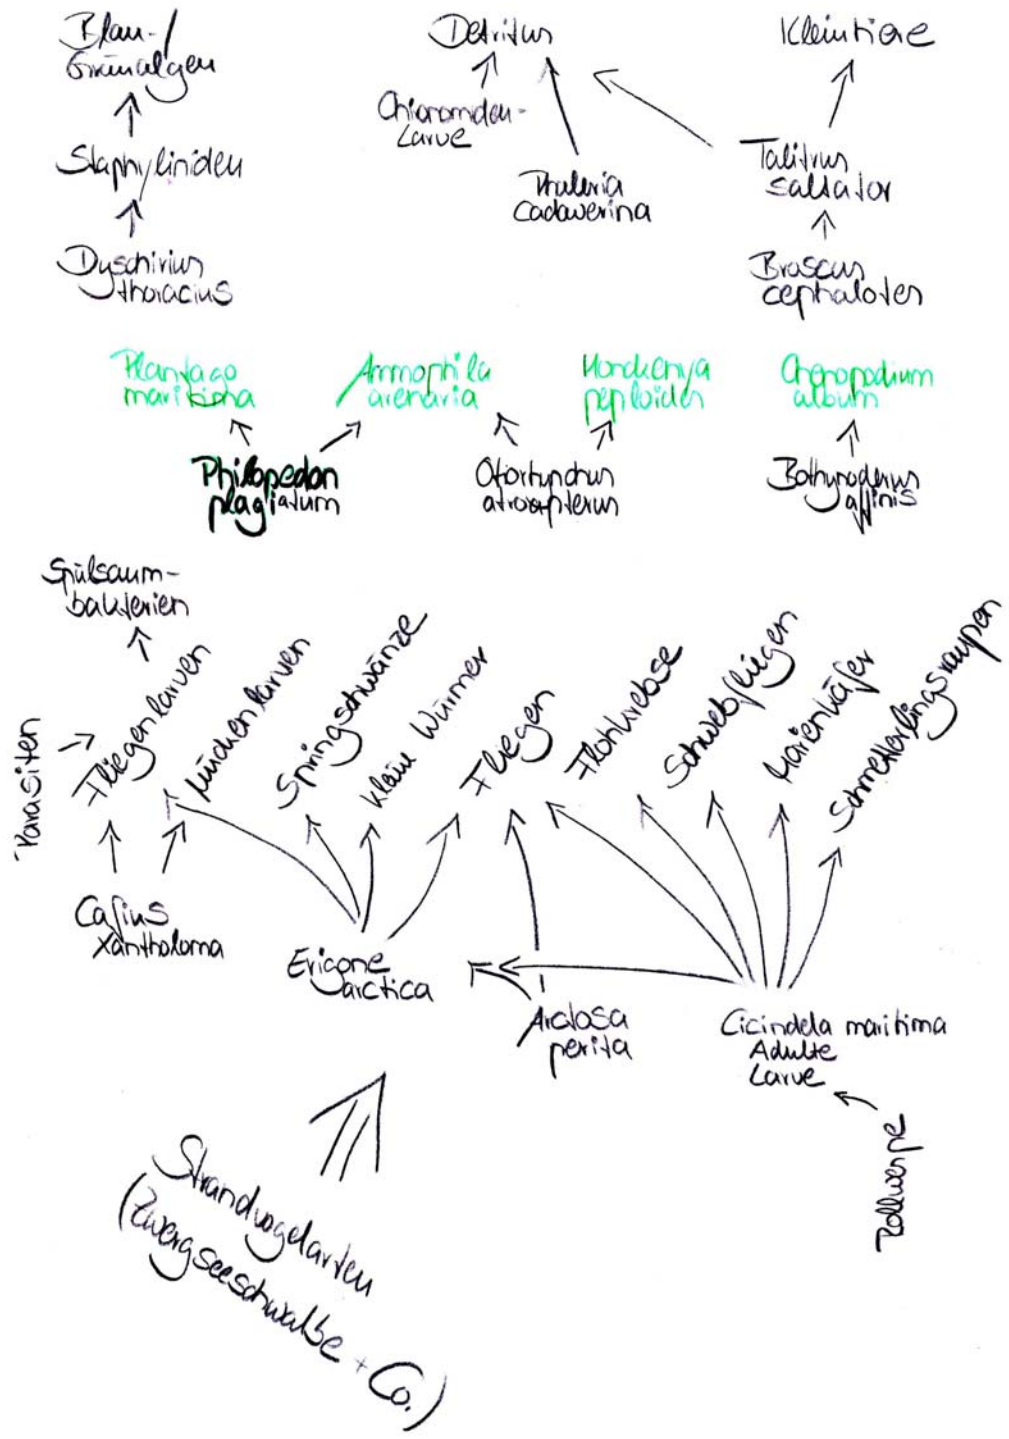 Blau-/
Grünalgen
Detritus
Kleintiere
Chironomiden-
Larve
Staphyliniden
Talitrus
saltator
Phaleria
Cadaverina
Dyschirius
thoracius
Broscus
cephalotes
Plantago
maritima
Ammophila
arenaria
Honckenya
peploides
Chenopodium
album
Philopedon
plagiatum
Otiorhynchus
atroapterus
Bothynoderus
affinis
Spülsaum-
bakterien
Parasiten
Fliegenlarven
Mückenlarven
Springschwänze
kleine Würmer
Fliegen
Flohkrebse
Schwebfliegen
Marienkäfer
Schmetterlingsraupen
Cafius
Xantholoma
Erigone
arctica
Arctosa
perita
Cicindela maritima
Adulte
Larve
Rollwespe
Strandvogelarten
(Zwergseeschwalbe + Co.)